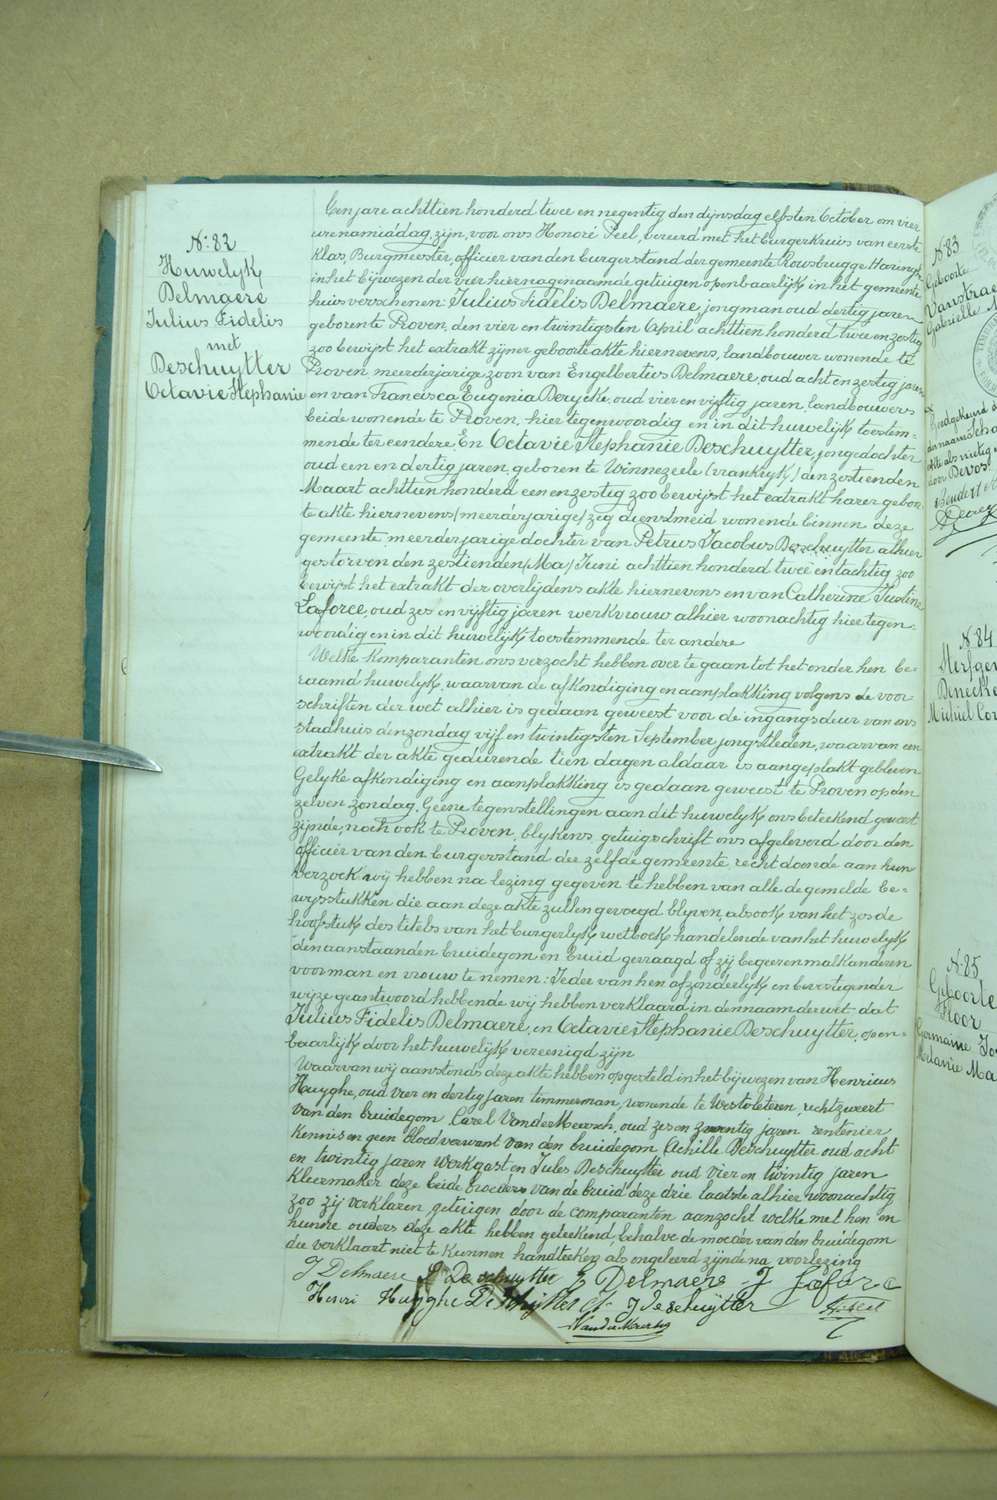 N.º 82
Huwelyk
Delmaere
Julius Fidelis
met
Deschuytter
Octavie Stephanie
Een jare achttien honderd twee en negentig den dijnsdag elfsten October om vier
uren namiddag, zijn, voor ons Honoré Peel, vereerd met het burgerkruis van eerste
klas, Burgmeester, officier van den burgerstand der gemeente Rousbrugge Haringhe
in het bijwezen der vier hiernagenaemde getuigen openbaarlijk in het gemeente
huis verschenen: Julius Fidelis Delmaere, jongman oud dertig jaren
geboren te Proven, den vier en twintigsten April achttien honderd twee en zestig
zoo bewijst het extrakt zijner geboorteakte hiernevens, landbouwer wonende te
Proven meerderjarige zoon van Engelbertus Delmaere, oud acht en zestig jaren
en van Francisca Eugenia Derycke, oud vier en vijftig jaren, landbouwers
beide wonende te Proven, hier tegenwoordig en in dit huwelijk toestem-
mende ter eendere. En Octavie Stephanie Deschuytter, jongedochter
oud een en dertig jaren, geboren te Winnezeele (vrankryk) den zestienden
Maart achttien honderd een en zestig zoo bewijst het extrakt harer geboor
te akte hiernevens (meerderjarige) zig dienstmeid wonende binnen deze
gemeente meerderjarige dochter van Petrus Jacobus Deschuytter alhier
gestorven den zestienden (Ma) Juni achttien honderd twee en tachtig zoo
bewijst het extrakt der overlijdens akte hiernevens en van Catherine Justine
Laforce, oud zes en vijftig jaren werkvrouw alhier woonachtig hier tegen-
woordig en in dit huwelijk toestemmende ter andere
Welke komparanten ons verzocht hebben over te gaan tot het onder hen be-
raamd huwelijk, waarvan de afkondiging en aanplakking volgens de voor
schriften der wet alhier is gedaan geweest voor de ingangsdeur van ons
stadhuis den zondag vijf en twintigsten September jongstleden, waarvan een
extrakt der akte gedurende tien dagen aldaar is aangeplakt gebleven
Gelyke afkondiging en aanplakking is gedaan geweest te Proven op den
zelven zondag. Geene tegenstellingen aan dit huwelyk ons beteekend geweest
zijnde, noch ook te Proven, blykens getuigschrift ons afgeleverd door den
officier van den burgerstand der zelfde gemeente recht doende aan hun
verzoek wij hebben na lezing gegeven te hebben van alle de gemelde be-
wysstukken die aan deze akte zullen gevoegd blyven, alsook van het zesde
hoofdstuk des titels van het burgerlyk wetboek handelende van het huwelyk
den aanstaanden bruidegom en bruid gevraagd of zij begeeren malkanderen
voor man en vrouw te nemen: Ieder van hen afzonderlijk en bevestigender
wijze geantwoord hebbende wij hebben verklaard in den naam der wet dat
Julius Fidelis Delmaere, en Octavie Stephanie Deschuytter, open-
baarlijk door het huwelijk vereenigd zijn
Waarvan wij aanstonds deze akte hebben opgesteld in het bijwezen van Henricus
Huyghe, oud vier en dertig jaren timmerman, wonende te Westvleteren, rechtzweert
van den bruidegom Carel VandeMeersch, oud zes en zeventig jaren rentenier
kennis en geen bloedverwant van den bruidegom Achille Deschuytter oud acht
en twintig jaren werkgast en Jules Deschuytter oud vier en twintig jaren
kleermaker deze beide broeders van de bruid deze drie laatste alhier woonachtig
zoo zij verklaren, getuigen door de comparanten aanzocht welke met hen en
hunne ouders deze akte hebben geteekend, behalve de moeder van den bruidegom
die verklaart niet te kunnen handteeken als ongeleerd zijnde na voorlezing
J Delmaere O Deschuytter E Delmaere J Laforce
Henri Huyghe Deschuytter A. J deschuytter H. Peel
VandeMeersch
N.º 83
Geboorte
Vanstrae
Gabrielle
Goedgekeurd
door Devos
N.º 84
Sterfgev
Denecke
Michiel Cor
N.º 85
Geboorte
Floor
Germaine Jo
Melanie Ma